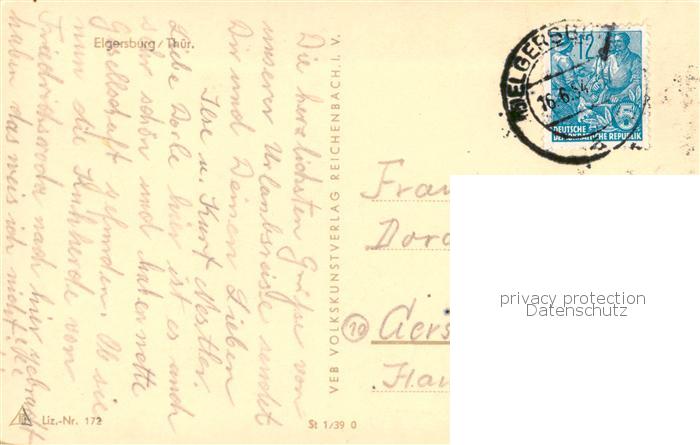 Elgersburg / Thür.
Die herzlichsten Grüße von
unserer Urlaubsreise sendet
Dir und Deinen Lieben
Ilse u. Kurt Mestler.
Liebe Dorle hier ist es auch
sehr schön und haben nette
Gesellschaft gefunden. Ob sie
nun die Kuhherde von
Friedrichsroda nach hier gebracht
haben das weis ich nicht!
VEB VOLKSKUNSTVERLAG REICHENBACH I. V.
Liz.-Nr. 172
St 1/39 0
ELGERSBU
16.6.54
12
5
DEUTSCHE
DEMOKRATISCHE REPUBLIK
Frau
Doro
10 Gers
Hau
privacy protection
Datenschutz